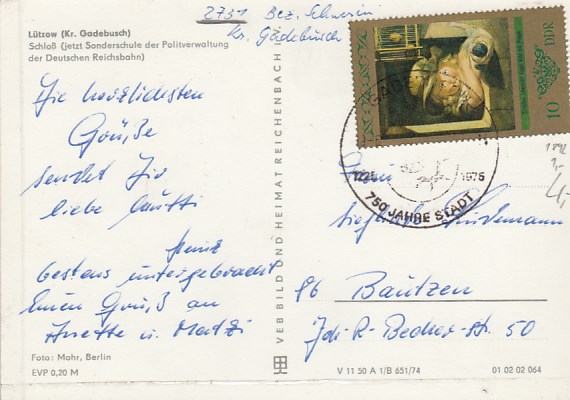 2731 Bez. Schwerin
Kr. Gadebusch
Lützow (Kr. Gadebusch)
Schloß (jetzt Sonderschule der Politverwaltung
der Deutschen Reichsbahn)
Die herzlichsten
Grüße
sendet Dir
liebe Mutti
Heinz
bestens untergebracht
Einen Gruß an
Anette u. Matzi
Foto: Mohr, Berlin
EVP 0,20 M
VEB BILD UND HEIMAT REICHENBACH i.
DDR
10
GADEB
1225 1975
750 JAHRE STADT
4,-
Frau
Sieglinde Lindemann
86 Bautzen
Joh-R-Becher-Str. 50
V 11 50 A 1/B 651/74
01 02 02 064